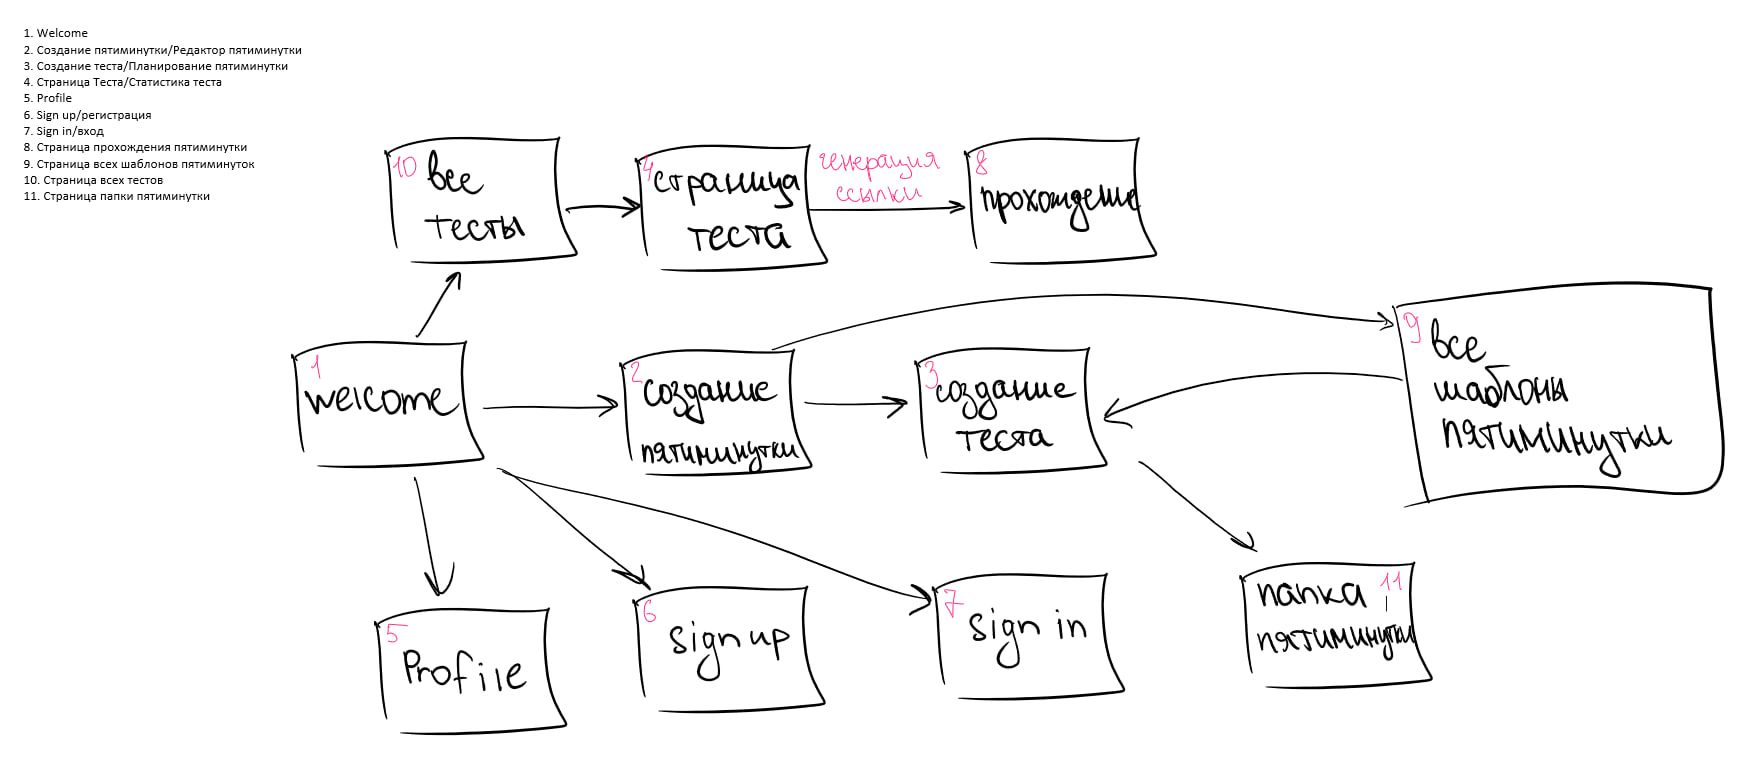 1. Welcome
2. Создание пятиминутки/Редактор пятиминутки
3. Создание теста/Планирование пятиминутки
4. Страница Теста/Статистика теста
5. Profile
6. Sign up/регистрация
7. Sign in/вход
8. Страница прохождения пятиминутки
9. Страница всех шаблонов пятиминуток
10. Страница всех тестов
11. Страница папки пятиминутки
10
все
тесты
4
страница
теста
генерация
ссылки
8
прохождение
1
welcome
2
создание
пятиминутки
3
создание
теста
9
все
шаблоны
пятиминутки
5
Profile
6
sign up
7
sign in
папка 11
пятиминутки